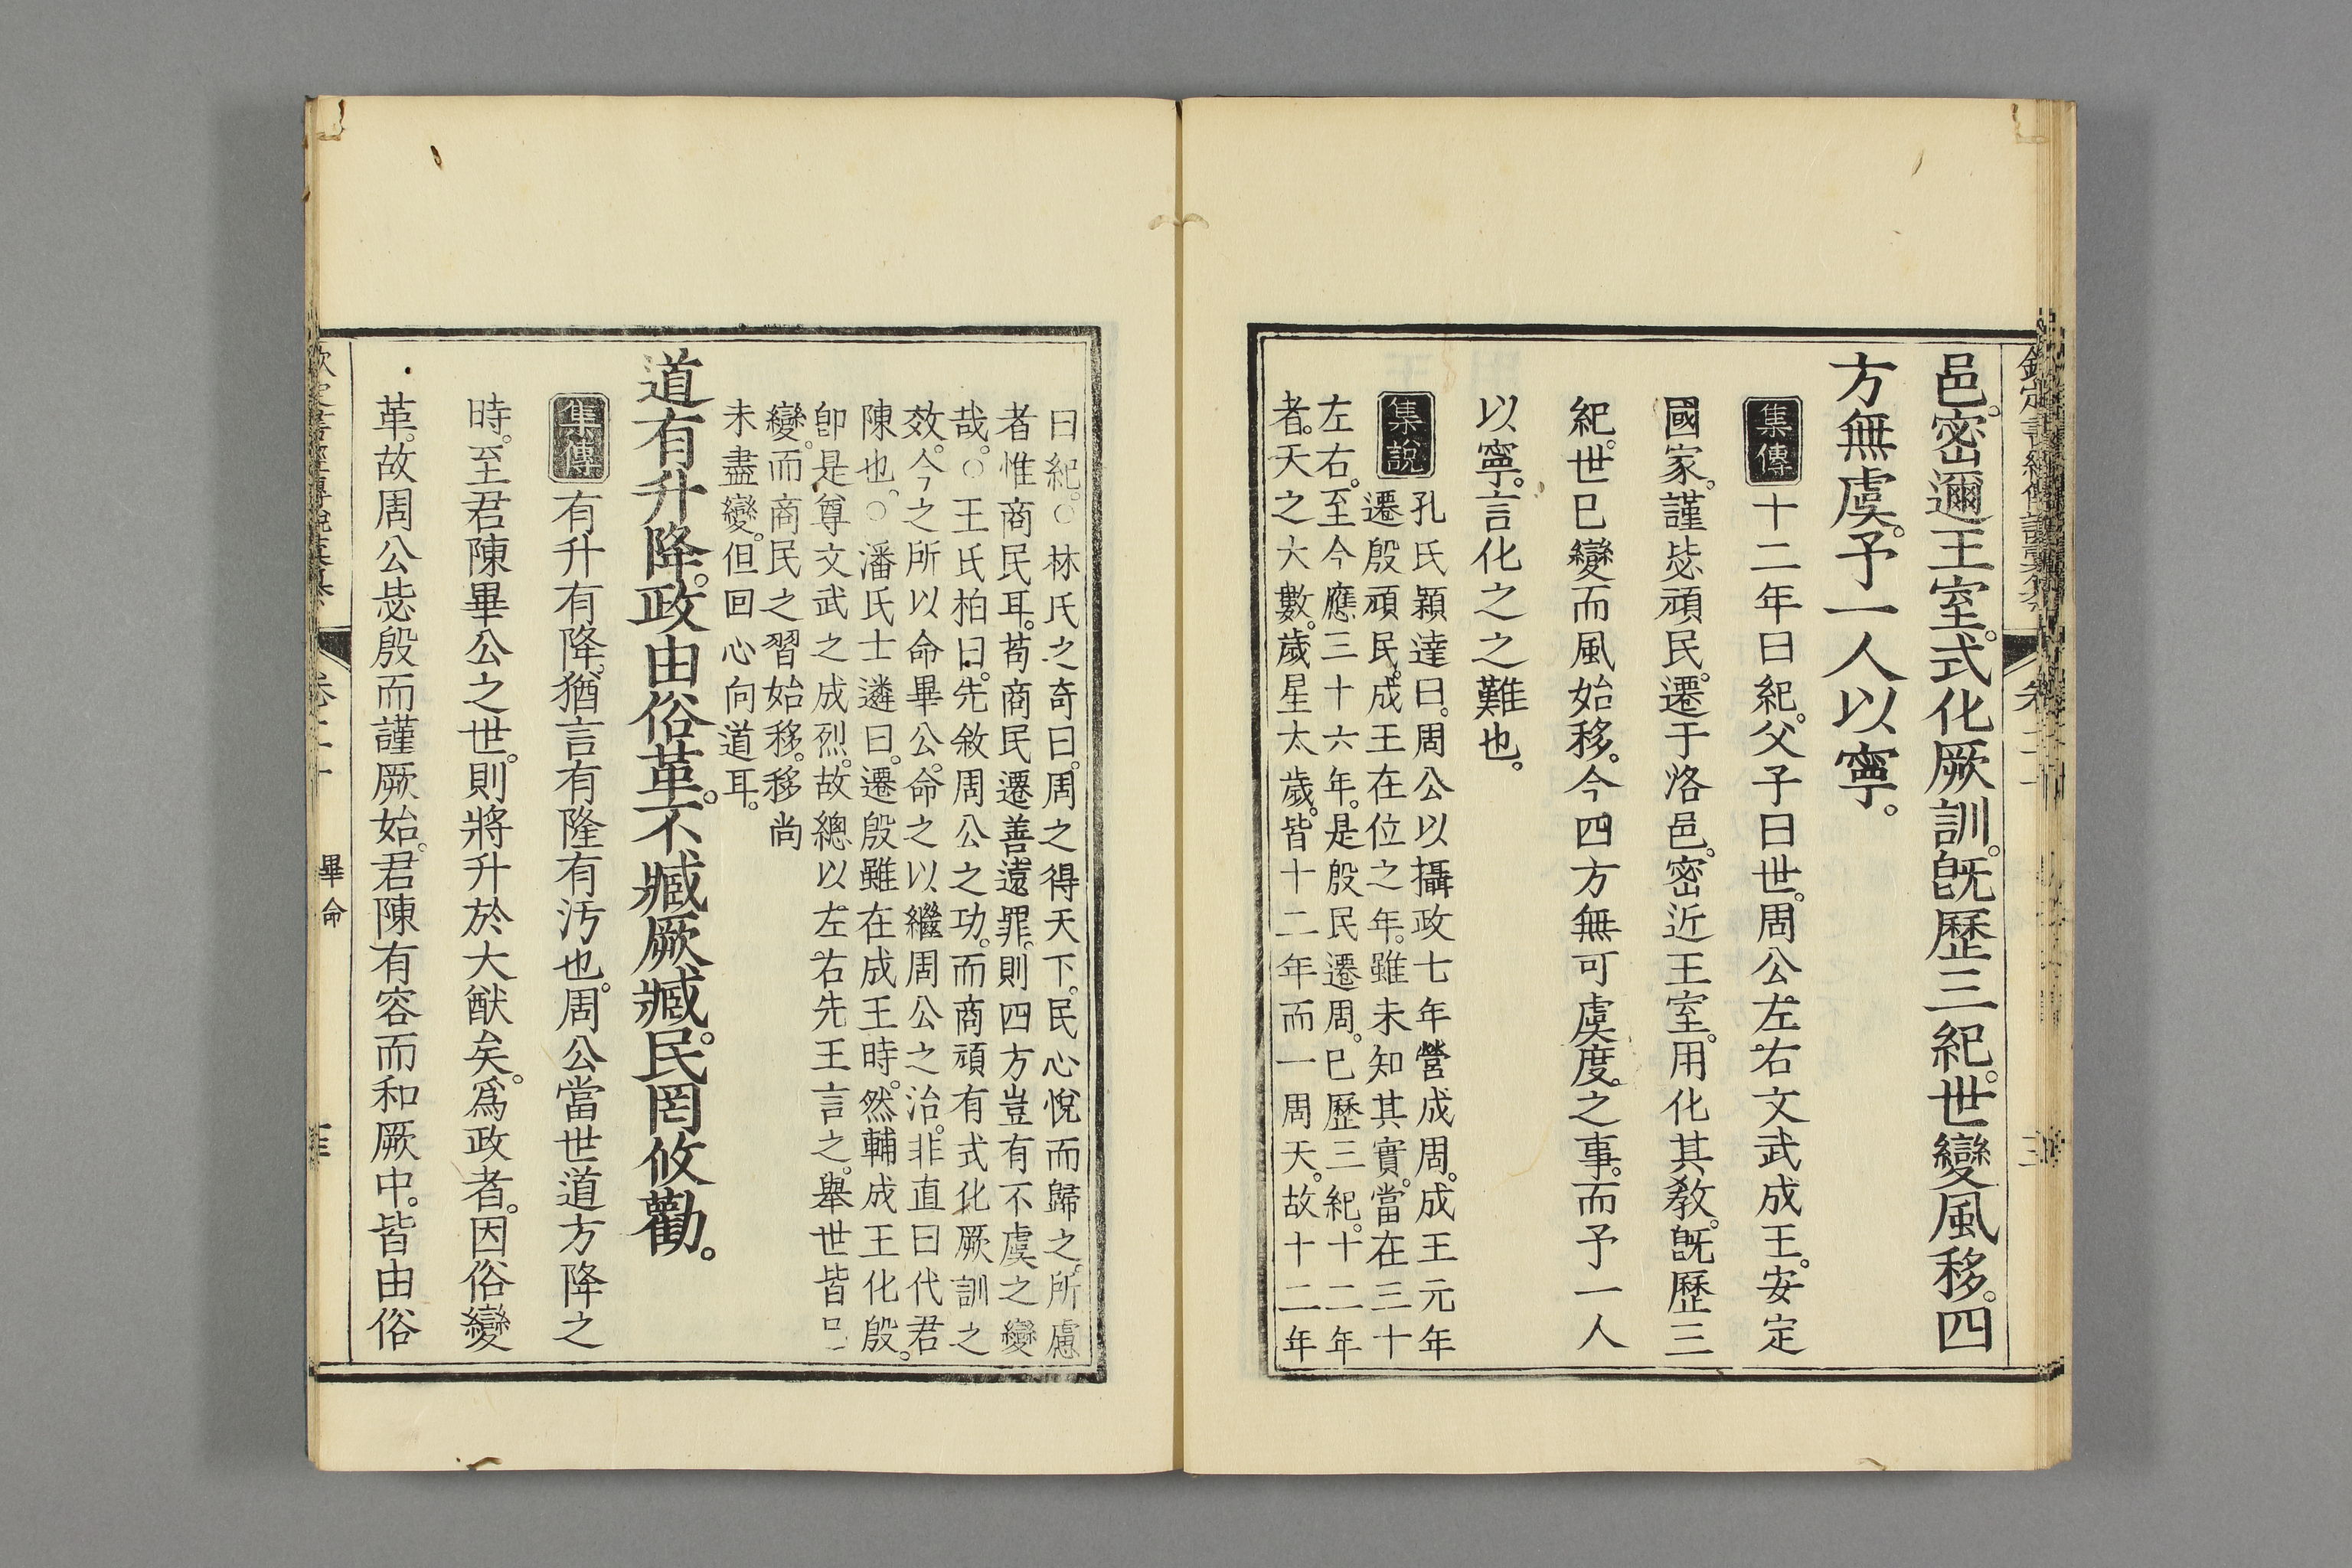 邑。密邇王室。式化厥訓。旣歷三紀。世變風移。四
方無虞。予一人以寧。
集傳
十二年曰紀。父子曰世。周公左右文武成王。安定
國家。謹毖頑民。遷于洛邑。密近王室。用化其敎。旣歷三
紀。世已變而風始移。今四方無可虞度之事。而予一人
以寧。言化之之難也。
集說
孔氏穎達曰。周公以攝政七年營成周。成王元年
遷殷頑民。成王在位之年。雖未知其實。當在三十
左右。至今應三十六年。是殷民遷周。已歷三紀。十二年
者。天之大數。歲星太歲。皆十二年而一周天。故十二年
曰紀。○林氏之奇曰。周之得天下。民心悅而歸之。所慮
者惟商民耳。苟商民遷善遠罪。則四方豈有不虞之變
哉。○王氏柏曰。先敘周公之功。而商頑有式化厥訓之
效。今之所以命畢公。命之以繼周公之治。非直曰代君
陳也。○潘氏士遴曰。遷殷雖在成王時。然輔成王化殷。
卽是尊文武之成烈。故總以左右先王言之。舉世皆已
變。而商民之習始移。移尚
未盡變。但回心向道耳。
道有升降。政由俗革。不臧厥臧。民罔攸勸。
集傳
有升有降。猶言有隆有汚也。周公當世道方降之
時。至君陳畢公之世。則將升於大猷矣。爲政者。因俗變
革。故周公毖殷而謹厥始。君陳有容而和厥中。皆由俗
畢命